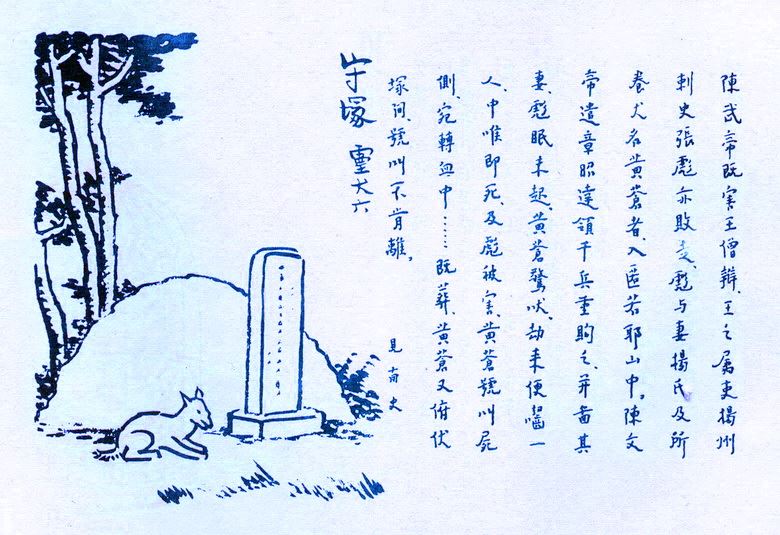 陳武帝既害王僧辯、王之屬吏揚州
刺史張彪亦敗走。彪与妻揚氏及所
養犬名黃蒼者、入匿若耶山中。陳文
帝遣章昭達領千兵重購之、并啚其
妻。彪眠未起、黃蒼驚吠、劫来便嚙一
人、中喉即死、及彪被害、黃蒼號叫屍
側、宛轉血中……既葬、黃蒼又俯伏
塚间、號叫不肯離。 見南史
守塚 靈犬六